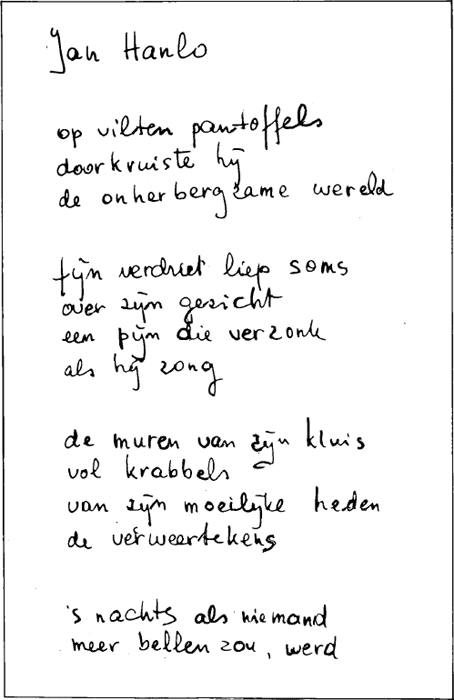 Jan Hanlo
op vilten pantoffels
doorkruiste hij
de onherbergzame wereld
fijn verdriet liep soms
over zijn gezicht
een pijn die verzonk
als hij zong
de muren van zijn kluis
vol krabbels
van zijn moeilijke heden
de verweertekens
's nachts als niemand
meer bellen zou, werd